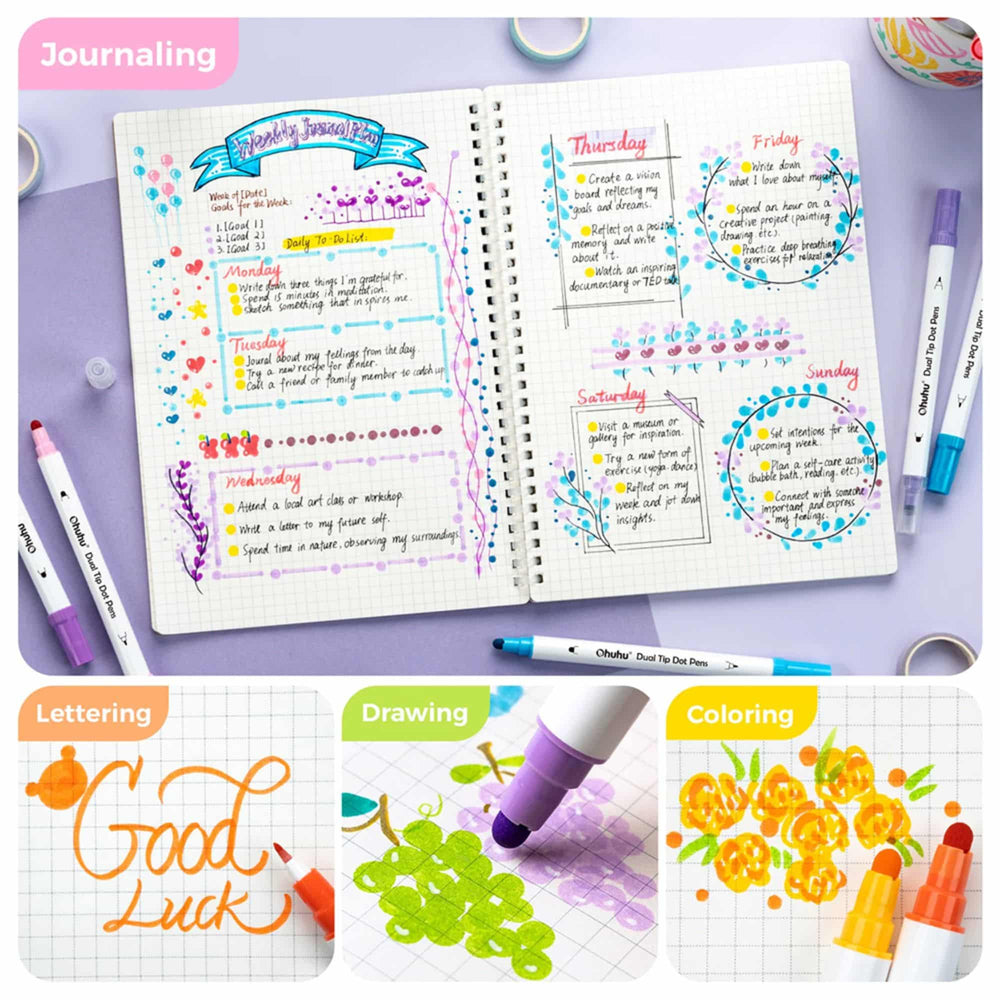 Journaling
Weekly Journal Plan
Week of [Date]
Goals for the Week:
1.[Goal 1]
2.[Goal 2]
3.[Goal 3]
Daily To-Do List:
Monday
Write down three things I'm grateful for.
Spend 15 minutes in meditation.
sketch something that in spires me.
Tuesday
Joural about my feelings from the day.
Try a new recipe for dinner.
Call a friend or family member to catch up
Wednesday
Attend a local art class or workshop.
Write a letter to my future self.
Spend time in nature, observing my surroundings.
Thursday
Create a vision
board reflecting my
goals and dreams.
Reflect on a positive
memory and write
about it.
Watch an inspiring
documentary or TED talk
Friday
Write down
what I love about myself.
Spend an hour on a
creative project (painting,
drawing, etc.).
Practice deep breathing
exercises for relaxation.
Saturday
Visit a museum or
gallery for inspiration.
Try a new form of
exercise (yoga, dance)
Reflect on my
week and jot down
insights.
Sunday
Set intentions for the
upcoming week.
Plan a self-care activity
(bubble bath, reading, etc.).
Connect with someone
important and express
my feelings.
Ohuhu
Ohuhu® Dual Tip Dot Pens
Ohuhu® Dual Tip Dot Pens
Ohuhu® Dual Tip Dot Pens
Tip Dot Pens
Lettering
Good
Luck
Drawing
Coloring